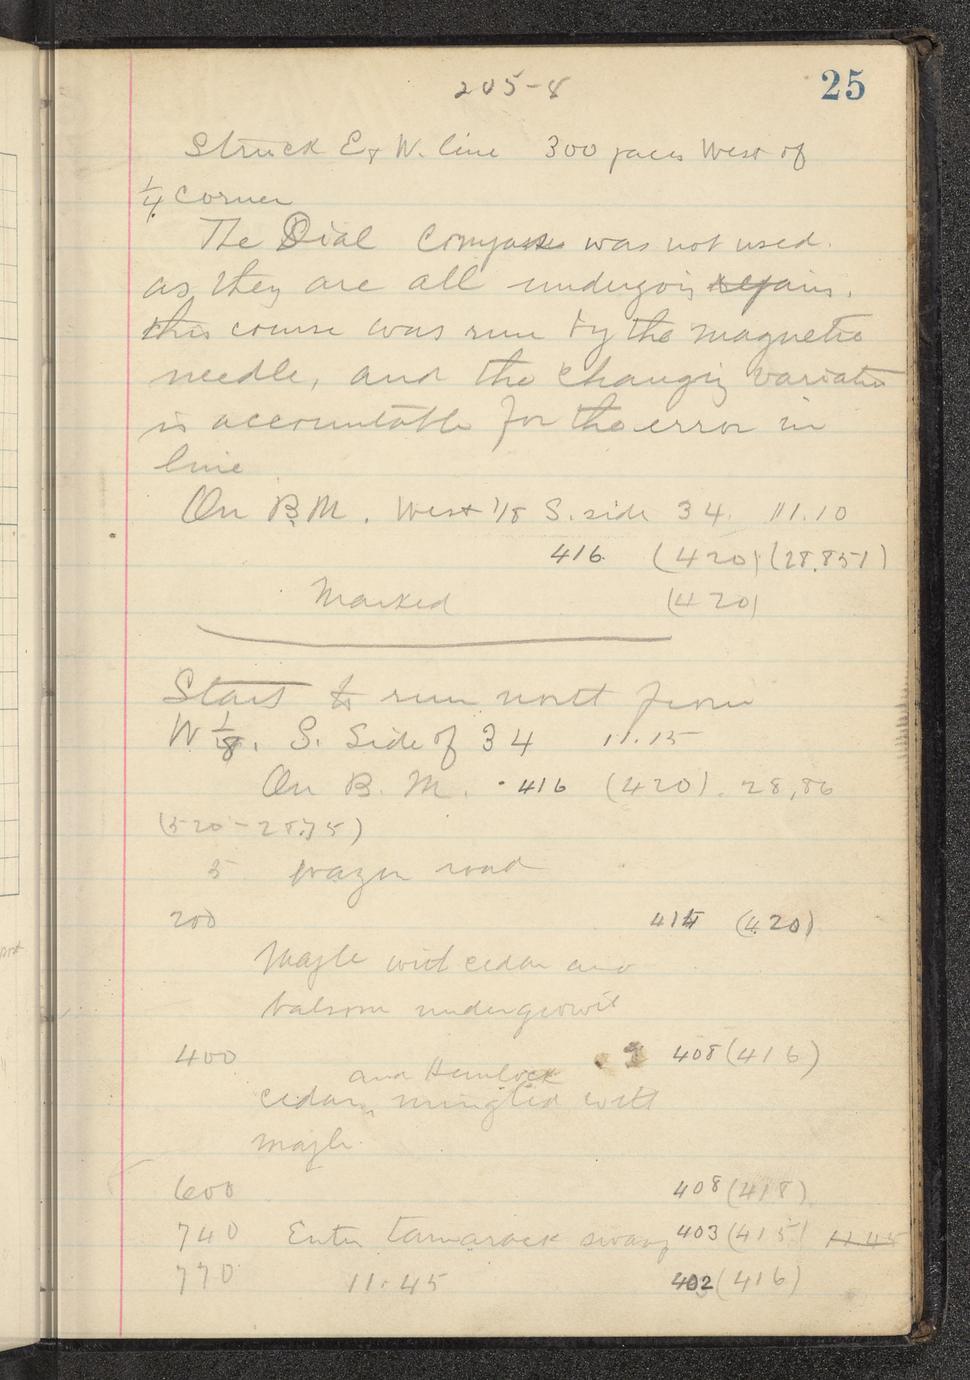 205-8
25
Struck E & W. line 300 paces West of
1/4 corner
The Dial Compasses was not used.
as they are all undergoin repairs.
this course was run by the magnetic
needle, and the changing variation
is accountable for the error in
line
On B.M. West 1/8 S. side 34. 11.10
416 (420) (28.851)
Marked (420)
Start to run north from
W 1/8. S. Side of 34 11.15
On B. M. 416 (420). 28,86
(520-28.75)
5 wagon road
200 414 (420)
Maple with cedar and
balsom undergrowth
400 408 (416)
and Hemlock
cedar, mingled with
maple.
600 408 (418)
740 Enter tamarack swamp 403 (415) 11.45
770 11.45 402 (416)